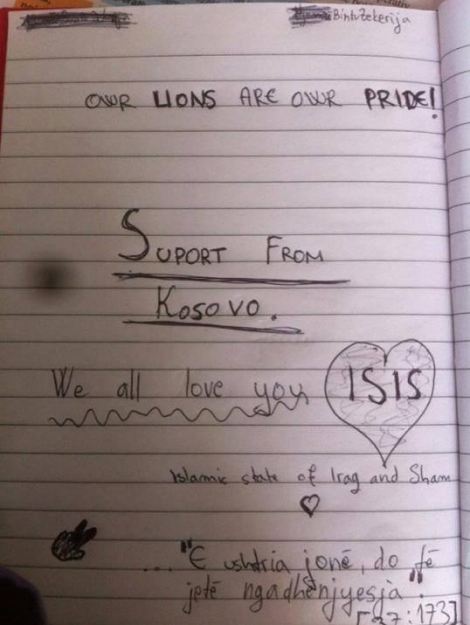 BintuZekerija
OWR LIONS ARE OWR PRIDE!
SUPORT FROM
Kosovo.
We all love you ISIS
Islamic state of Iraq and Sham
... "E ushtria jonë, do të
jetë ngadhënjyesja"
[37:173]